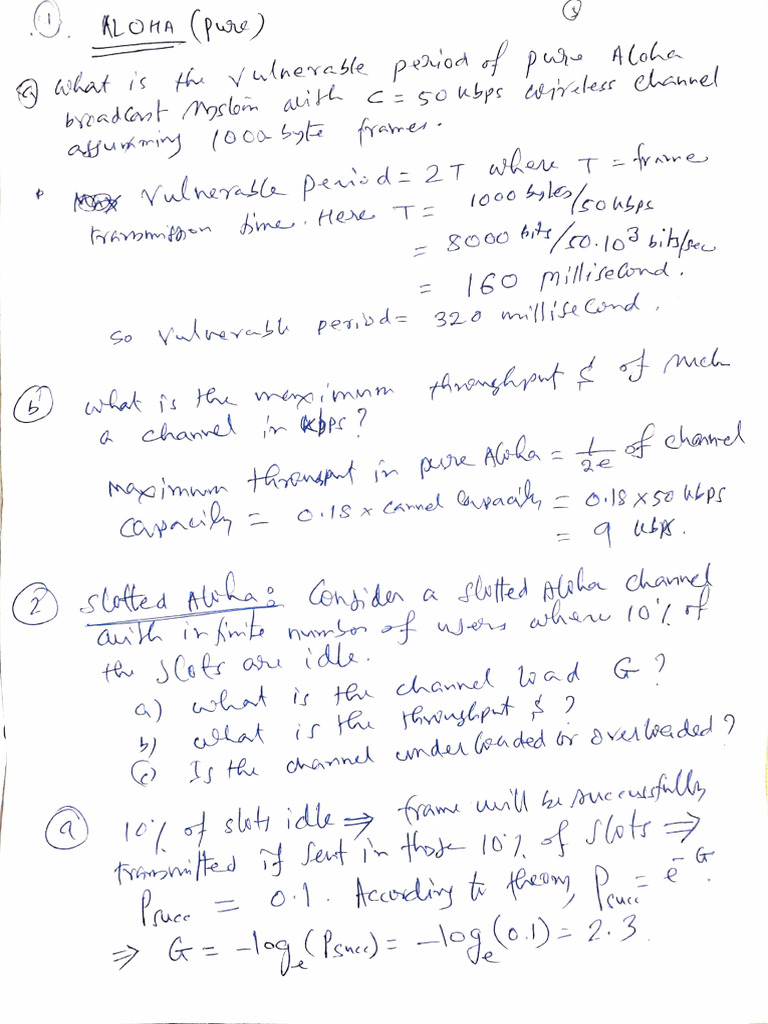 1. ALOHA (pure)
a) what is the vulnerable period of pure Aloha
broadcast system with C = 50 kbps wireless channel
assumming 1000 byte frames.
• Vulnerable period = 2T where T = frame
transmission time. Here T = 1000 bytes/50kbps
= 8000 bits/50.10³ bits/sec
= 160 millisecond.
So vulnerable period = 320 millisecond.
b) what is the maximum throughput S of such
a channel in kbps?
Maximum througput in pure Aloha = 1/2e of channel
capacity = 0.18 x cannel capacity = 0.18 x 50 kbps
= 9 kbps.
2) Slotted Aloha: Consider a slotted Aloha channel
with infinite number of users where 10% of
the slots are idle.
a) what is the channel load G?
b) what is the throughput S?
c) Is the channel underloaded or overloaded?
a) 10% of slots idle ⇒ frame will be successfully
transmitted if sent in those 10% of slots ⇒
Psucc = 0.1. According to theory, Psucc = e^-G.
⇒ G = -logₑ(Psucc) = -logₑ(0.1) = 2.3